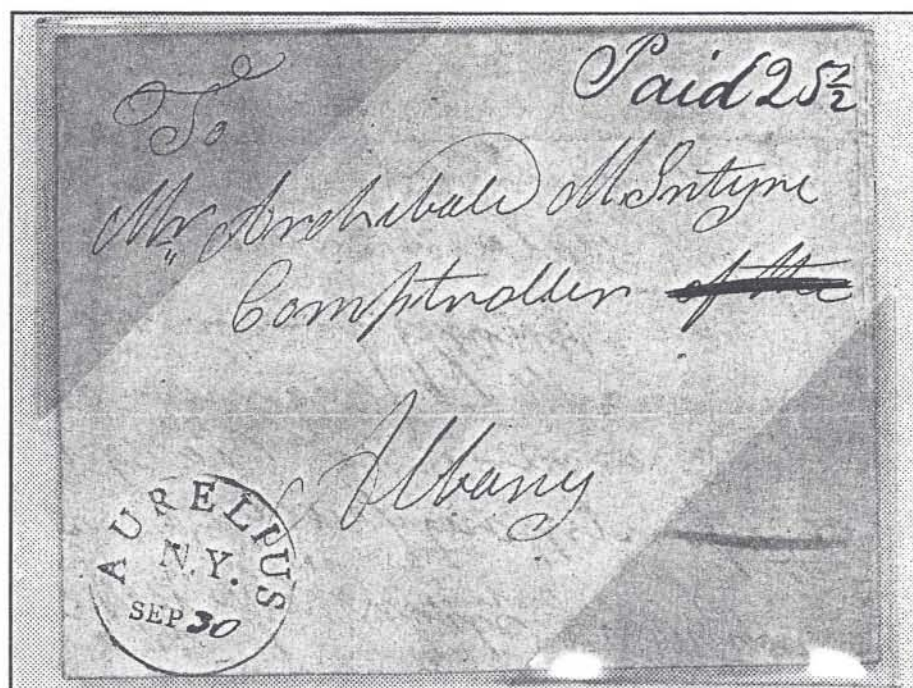 Paid 25½
To
Mr. Archibald McIntyre
Comptroller of the
Albany
AURELIUS
N.Y.
SEP 30